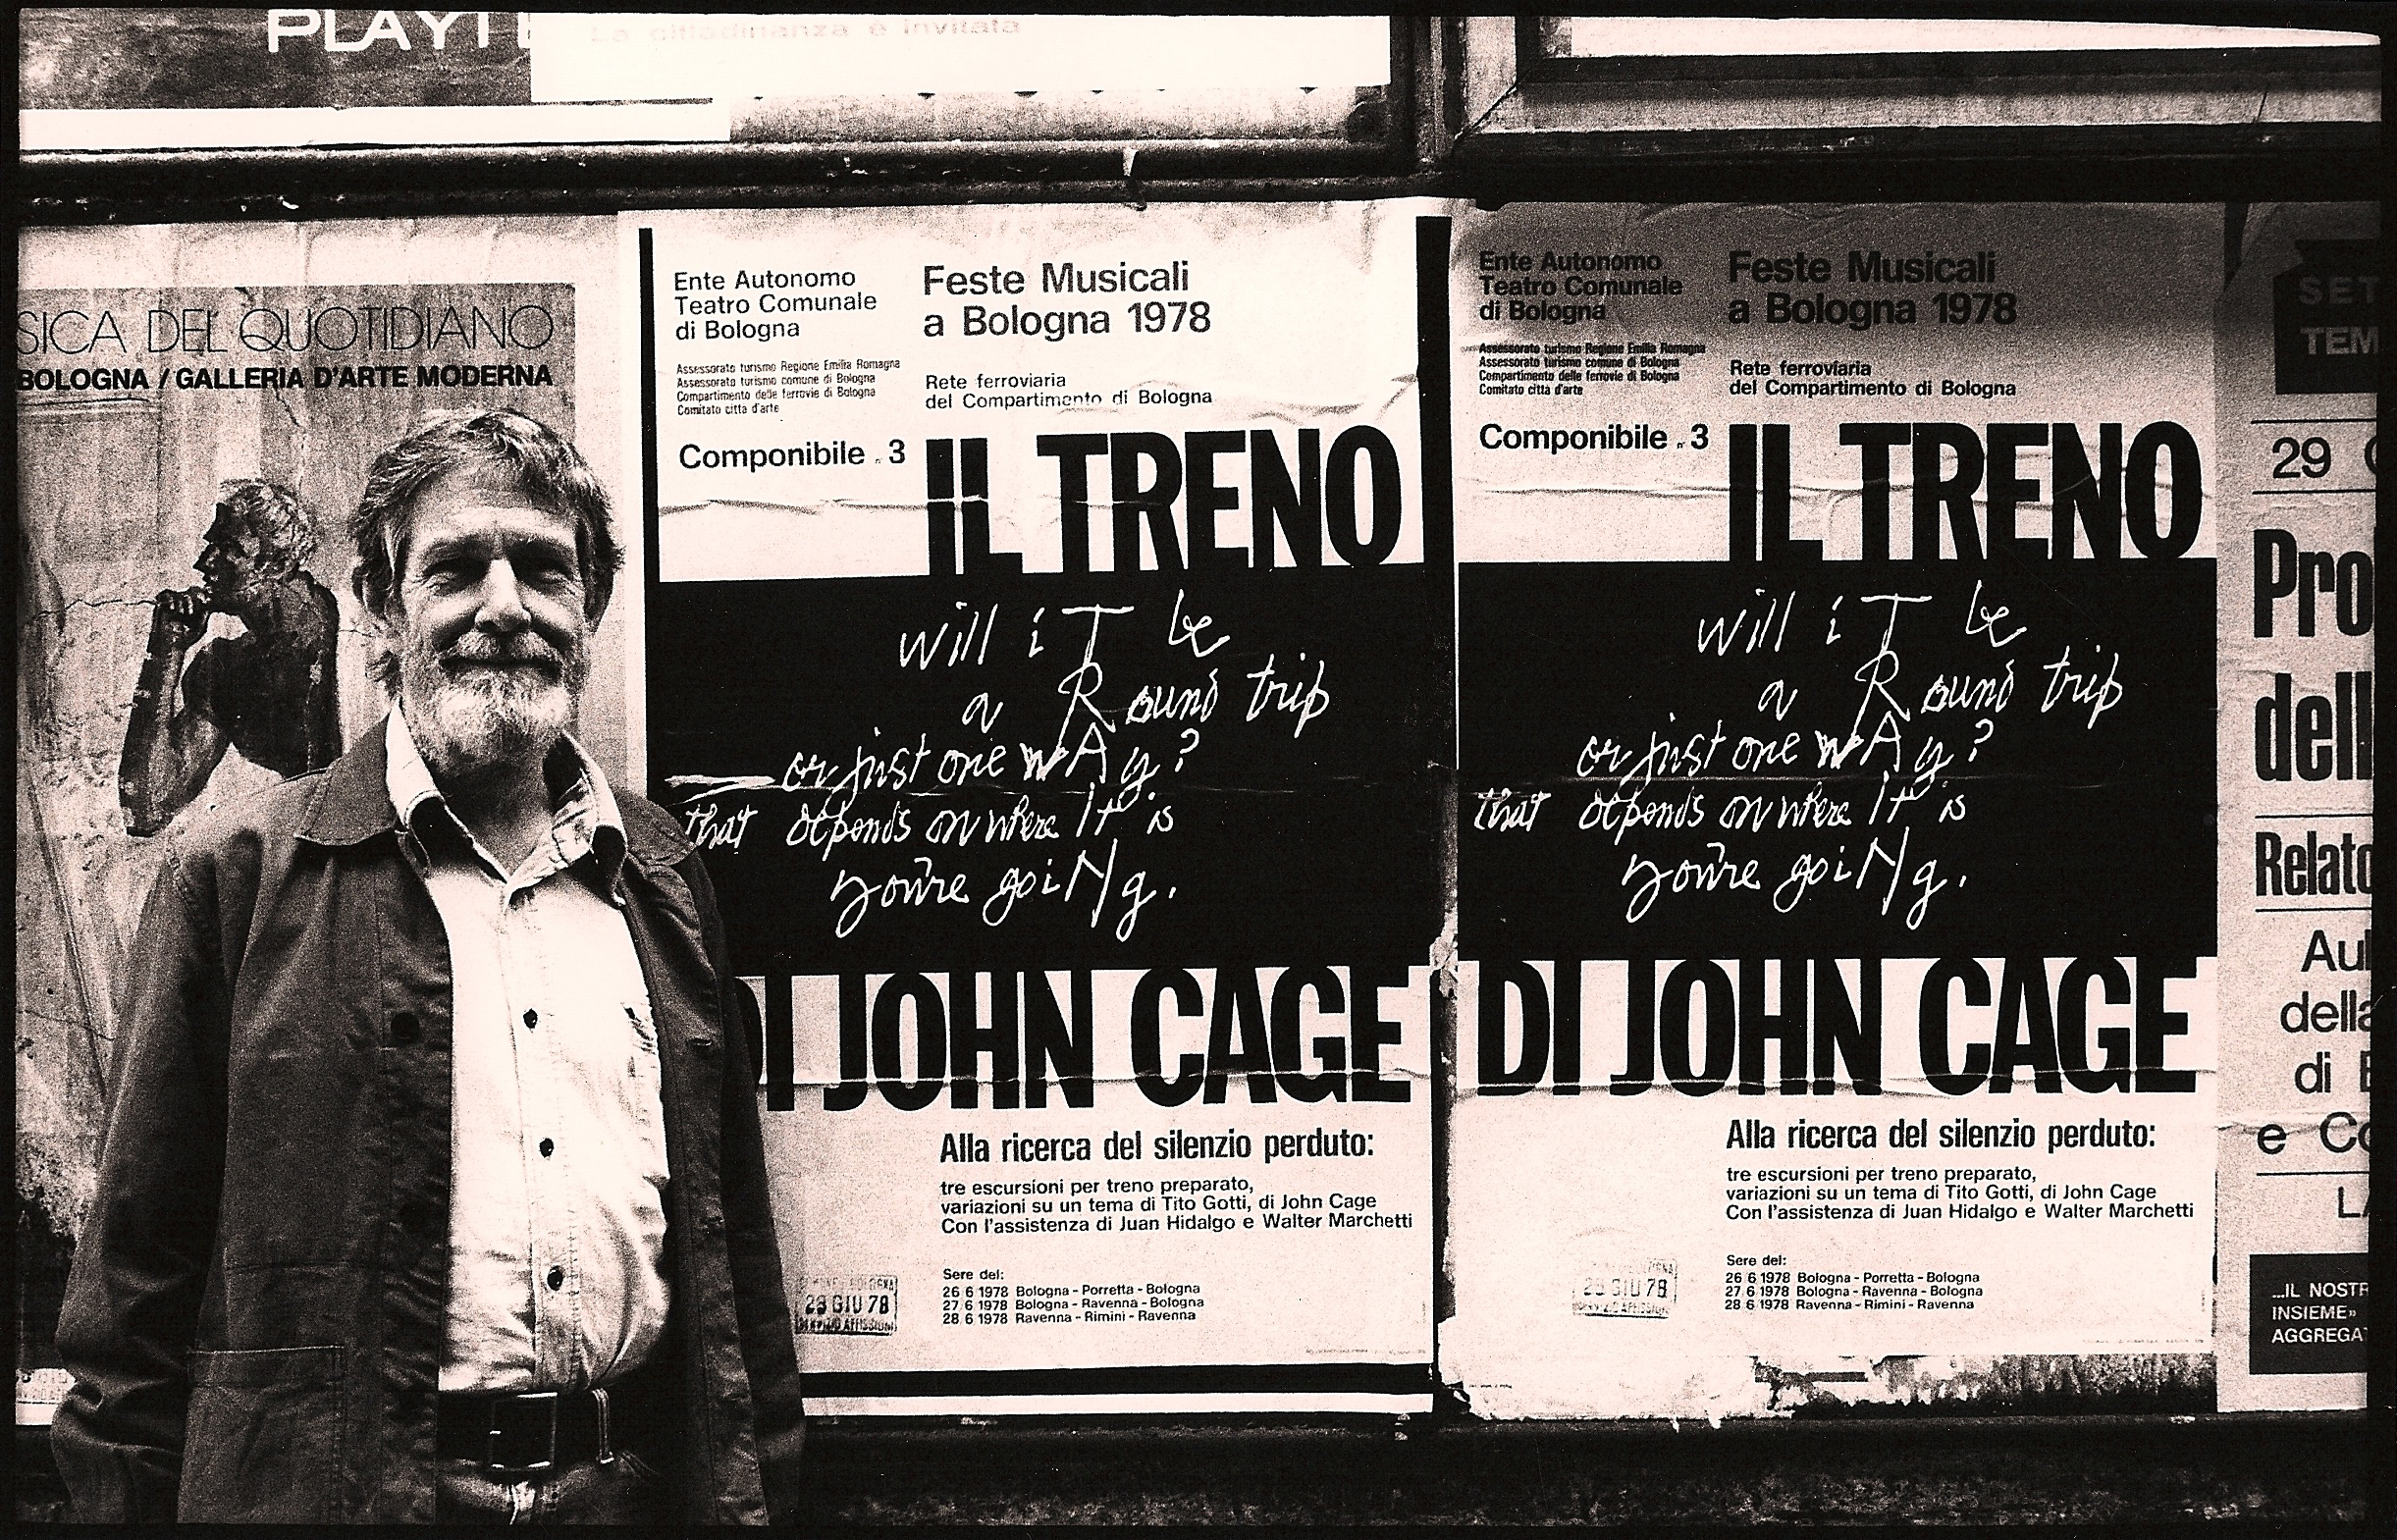 La cittadinanza è invitata
SICA DEL QUOTIDIANO
BOLOGNA / GALLERIA D'ARTE MODERNA
Ente Autonomo
Teatro Comunale
di Bologna
Assessorato turismo Regione Emilia Romagna
Assessorato turismo comune di Bologna
Compartimento delle ferrovie di Bologna
Comitato città d'arte
Feste Musicali
a Bologna 1978
Rete ferroviaria
del Compartimento di Bologna
Componibile n. 3
IL TRENO
will iT be
a Round trip
or just one wAy?
that depends on where iT is
you're goiNg.
DI JOHN CAGE
Alla ricerca del silenzio perduto:
tre escursioni per treno preparato,
variazioni su un tema di Tito Gotti, di John Cage
Con l'assistenza di Juan Hidalgo e Walter Marchetti
Sere del:
26 6 1978 Bologna - Porretta - Bologna
27 6 1978 Bologna - Ravenna - Bologna
28 6 1978 Ravenna - Rimini - Ravenna
23 GIU 78
SERVIZIO AFFISSIONI
Ente Autonomo
Teatro Comunale
di Bologna
Assessorato turismo Regione Emilia Romagna
Assessorato turismo comune di Bologna
Compartimento delle ferrovie di Bologna
Comitato città d'arte
Feste Musicali
a Bologna 1978
Rete ferroviaria
del Compartimento di Bologna
Componibile n. 3
IL TRENO
will iT be
a Round trip
or just one wAy?
that depends on where iT is
you're goiNg.
DI JOHN CAGE
Alla ricerca del silenzio perduto:
tre escursioni per treno preparato,
variazioni su un tema di Tito Gotti, di John Cage
Con l'assistenza di Juan Hidalgo e Walter Marchetti
Sere del:
26 6 1978 Bologna - Porretta - Bologna
27 6 1978 Bologna - Ravenna - Bologna
28 6 1978 Ravenna - Rimini - Ravenna
23 GIU 78
SET
TEM
29
Pro
dell
Relato
Aul
della
di
e Co
LA
...IL NOSTR
INSIEME»
AGGREGAT